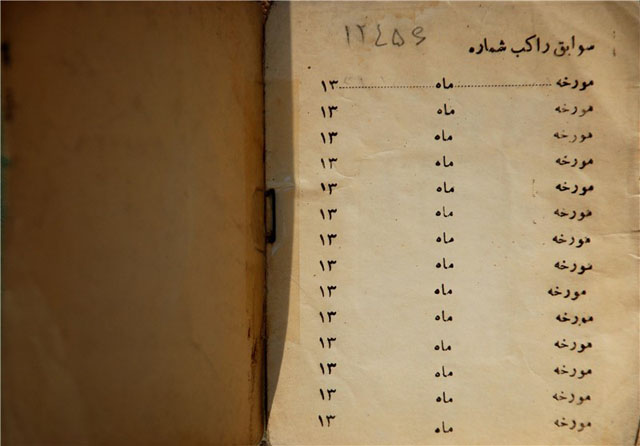 سوابق راکب شماره ۱۲۴۵۶
مورخه ........ ماه ........ ۱۳
مورخه ماه ۱۳
مورخه ماه ۱۳
مورخه ماه ۱۳
مورخه ماه ۱۳
مورخه ماه ۱۳
مورخه ماه ۱۳
مورخه ماه ۱۳
مورخه ماه ۱۳
مورخه ماه ۱۳
مورخه ماه ۱۳
مورخه ماه ۱۳
مورخه ماه ۱۳
مورخه ماه ۱۳